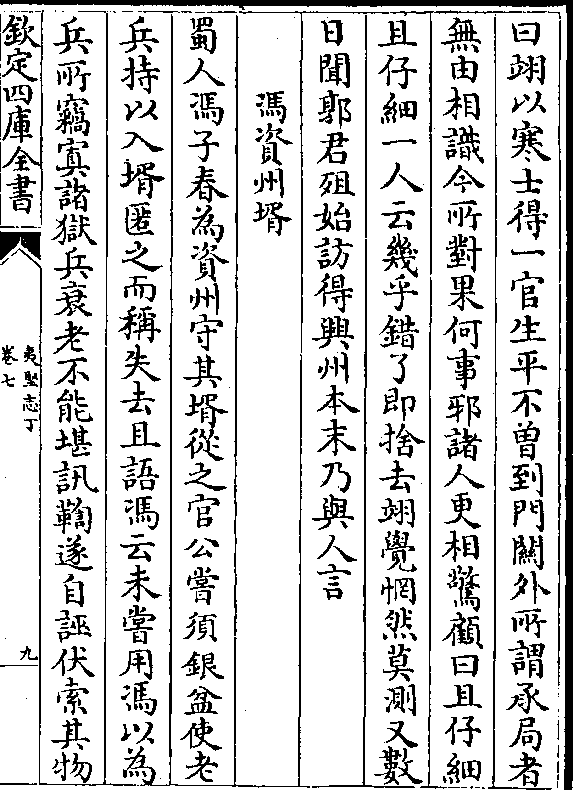 曰翊以寒士得一官生平不曾到門闗外所謂承局者
無由相識今所對果何事耶諸人更相驚顧曰且仔細
且仔細一人云幾乎錯了即捨去翊覺惘然莫測又數
日聞郭君殂始訪得興州本末乃與人言
馮資州壻
蜀人馮子春為資州守其壻從之官公嘗須銀盆使老
兵持以入壻匿之而稱失去且語馮云未嘗用馮以為
兵所竊寘諸獄兵衰老不能堪訊鞫遂自誣伏索其物
欽定四庫全書
夷堅志丁
卷七
九